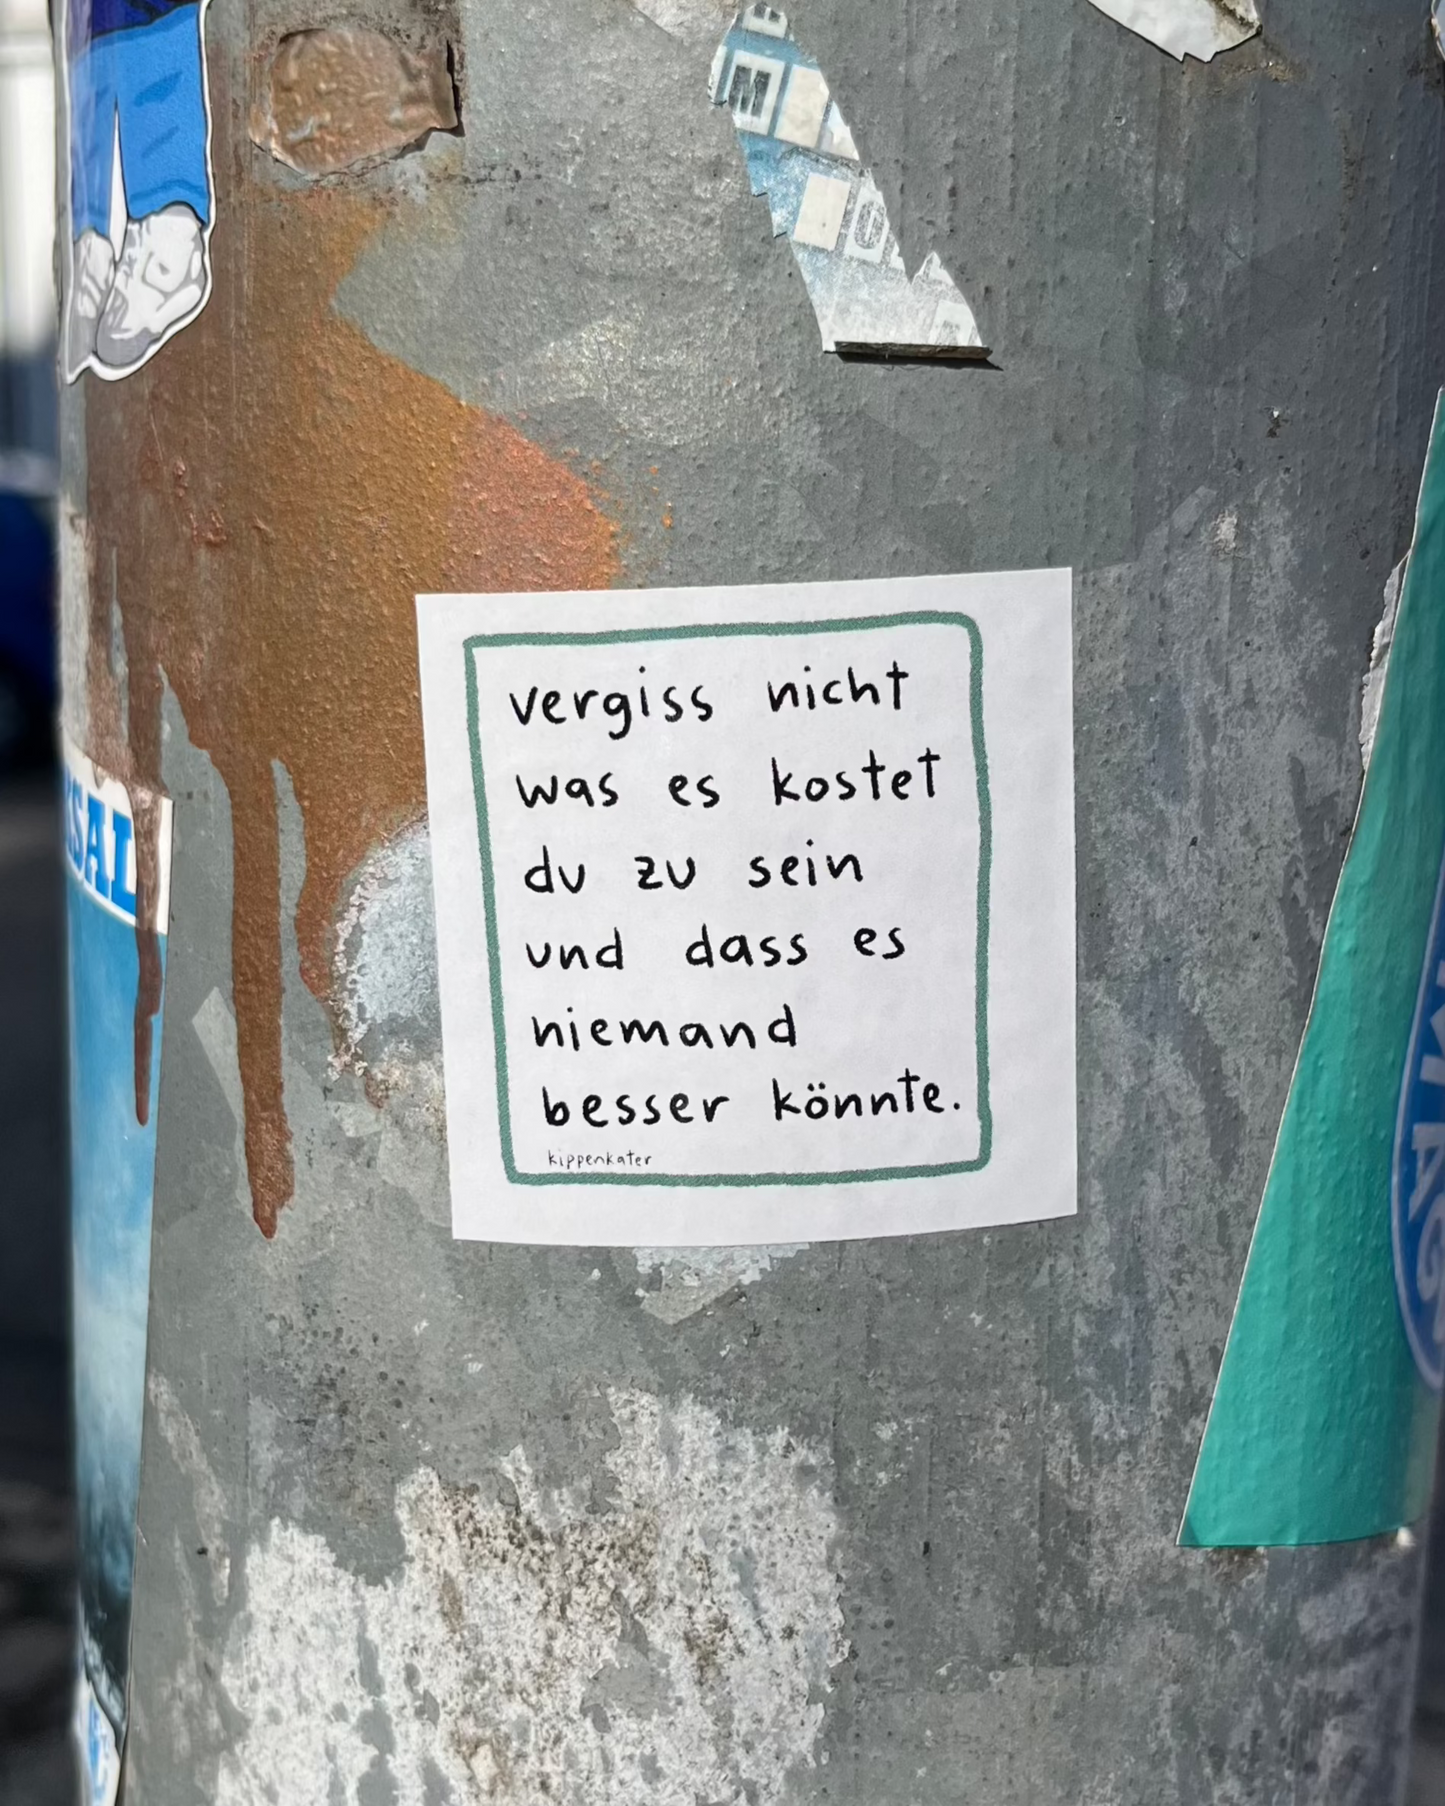 vergiss nicht
was es kostet
du zu sein
und dass es
niemand
besser könnte.
kippenkater